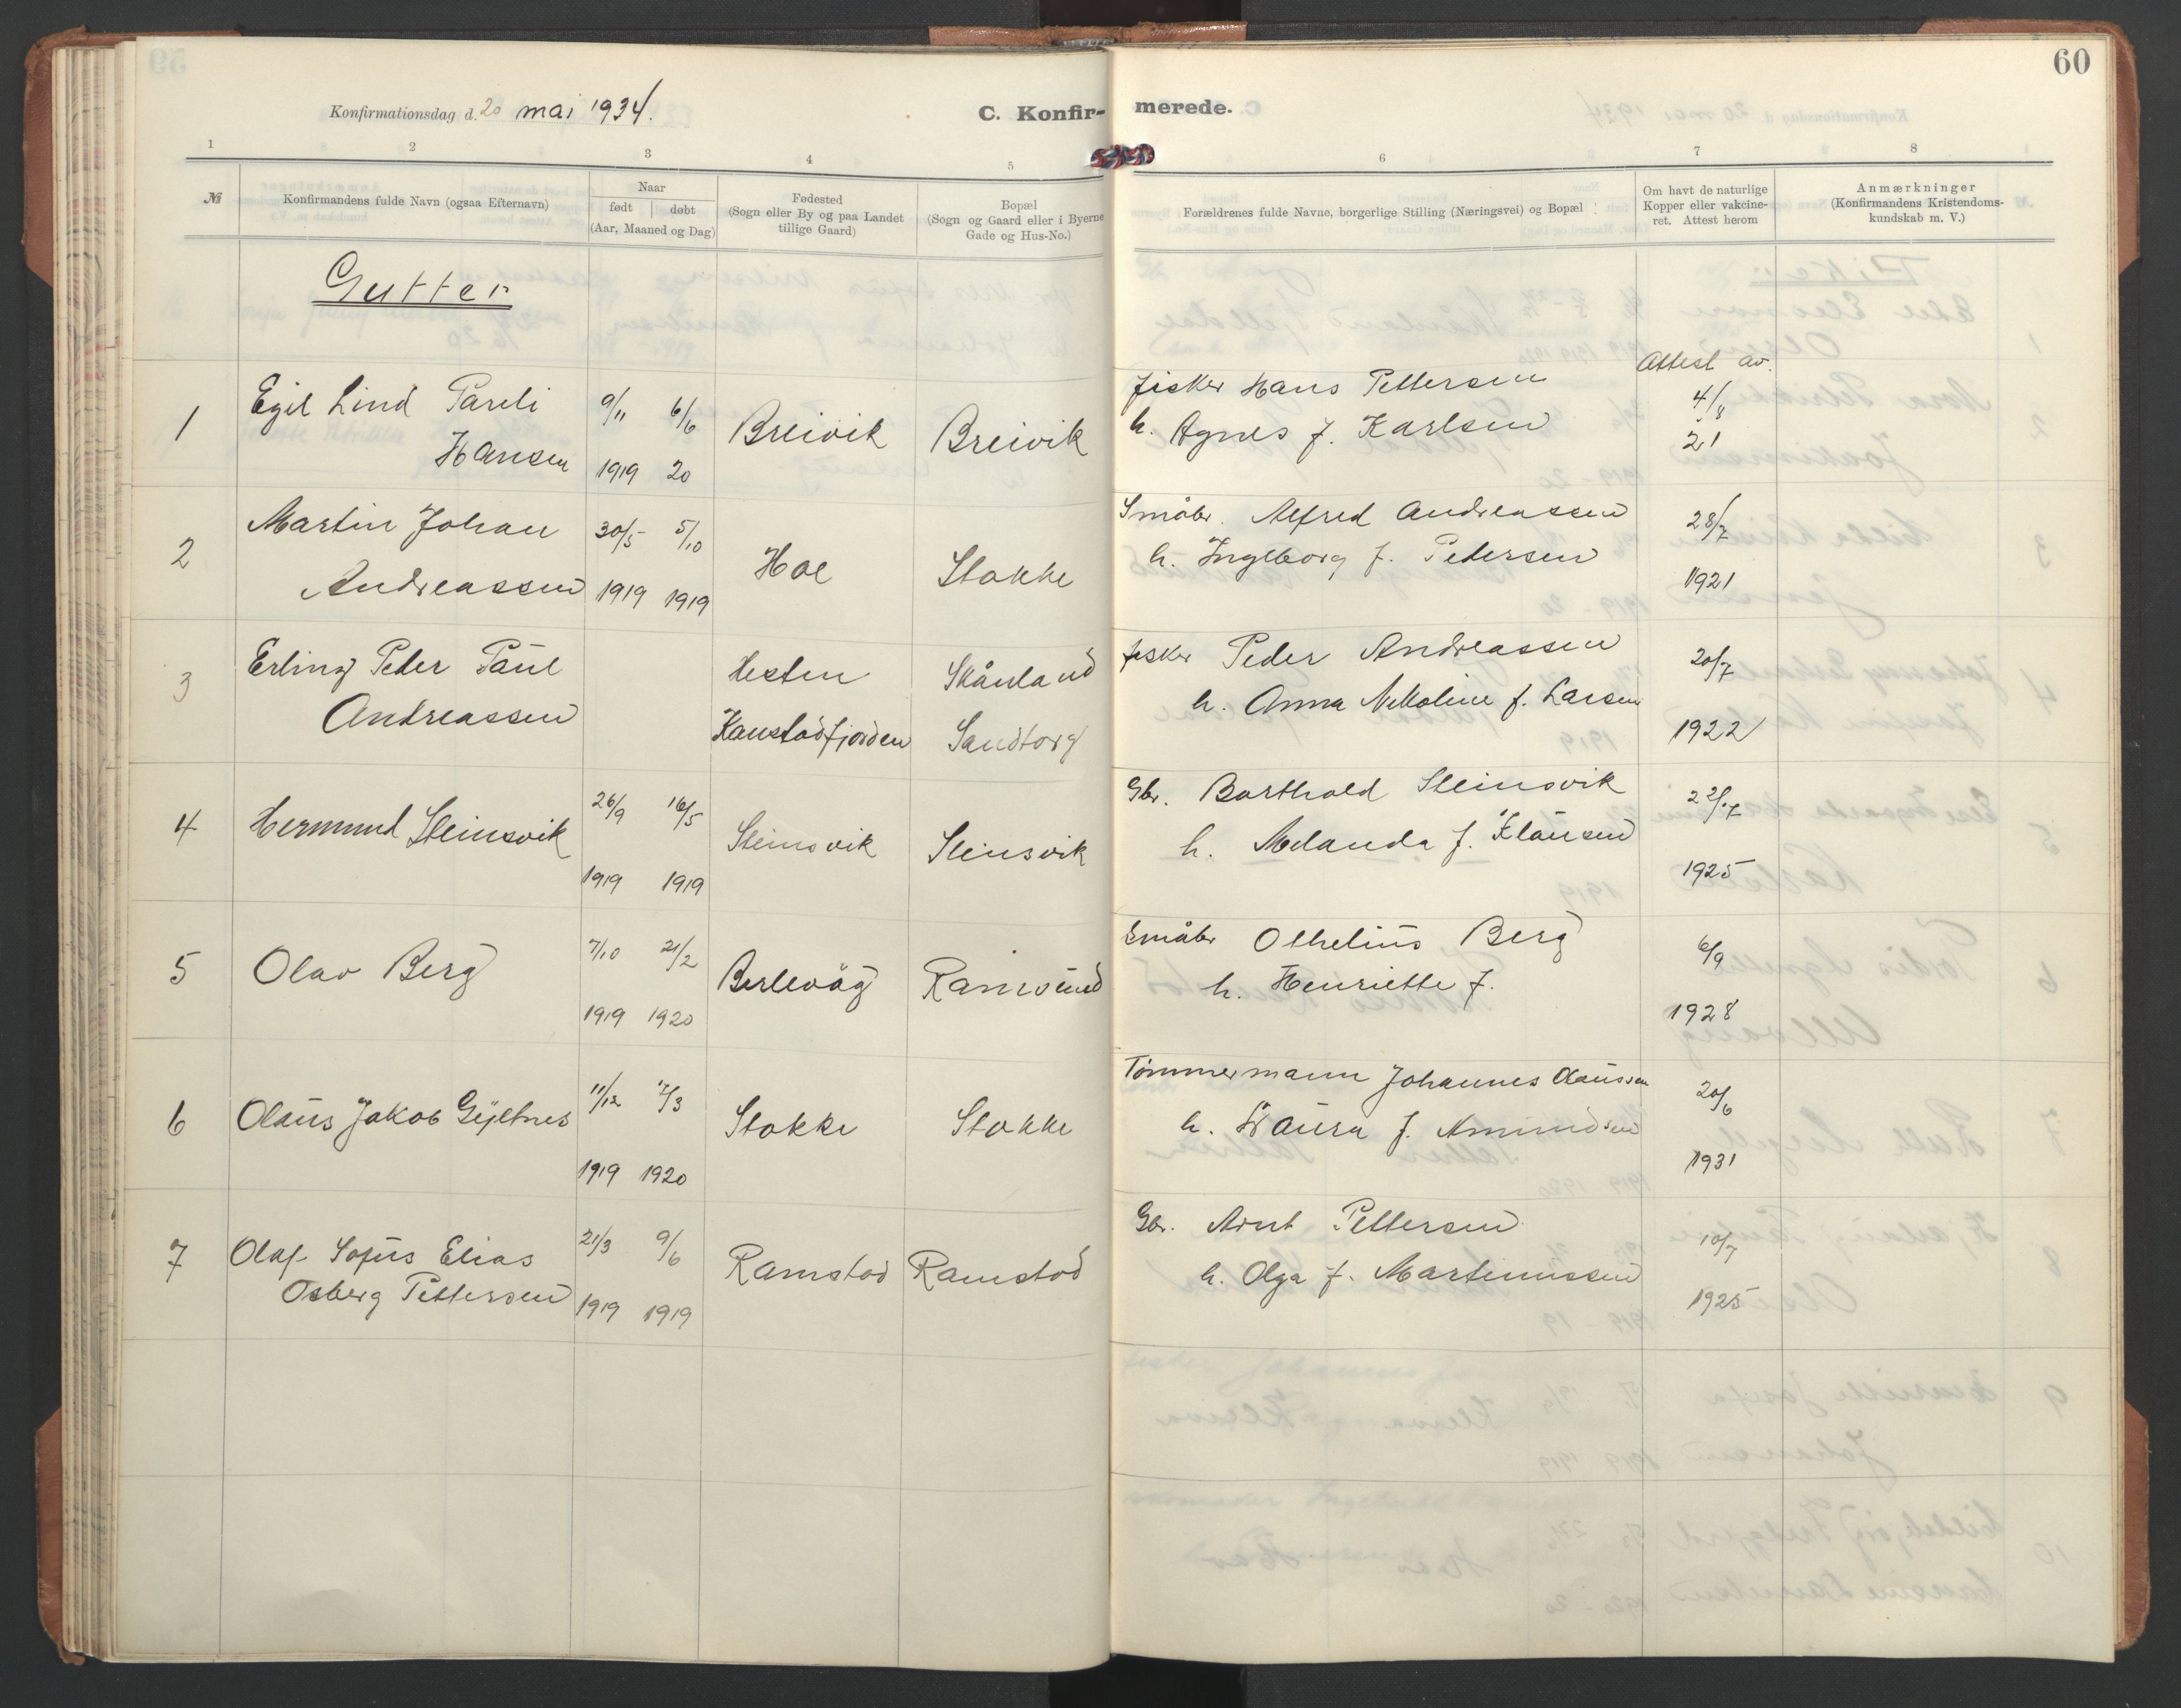 60
Konfirmationsdag d. 20 mai 1934.
C. Konfir- merede.
1 2 3 4 5 6 7 8
№
Konfirmandens fulde Navn (ogsaa Efternavn)
Naar
født døbt
(Aar, Maaned og Dag)
Fødested
(Sogn eller By og paa Landet
tillige Gaard)
Bopæl
(Sogn og Gaard eller i Byerne
Gade og Hus-No.)
Forældrenes fulde Navne, borgerlige Stilling (Næringsvei) og Bopæl
Om havt de naturlige
Kopper eller vakcine-
ret. Attest herom
Anmærkninger
(Konfirmandens Kristendoms-
kundskab m. V.)
Gutter
1 Egil Lind Pareli
Hansen
9/11 6/6
1919 20
Breivik Breivik
fisker Hans Pettersen
h. Agnes f. Karlsen
Attest av.
4/8
21
2 Martin Johan
Andreassen
30/5 5/10
1919 1919
Hol Stokke
Småbr. Alfred Andreassen
h. Ingeborg f. Pedersen
28/7
1921
3 Erling Peder Paul
Andreassen
Hesten
Kanstadfjorden
Skånland
Sandtorg
fisker Peder Andreassen
h. Anna Nikoline f. Larsen
20/7
1922
4 Hermund Steinsvik
26/9 16/5
1919 1919
Steinsvik Steinsvik
Gbr. Barthold Steinsvik
h. Melanda f. Klausen
22/7
1925
5 Olav Berg
7/10 21/2
1919 1920
Berlevåg Ramsund
Småbr Othelius Berg
h. Henriette f.
6/9
1928
6 Olaus Jakob Gjeltnes
11/12 /3
1919 1920
Stokke Stokke
Tømmermann Johannes Olaussen
h. Laura f. Amundsen
20/6
1931
7 Olaf Sofus Elias
Osberg Pettersen
21/3 9/6
1919 1919
Ramstad Ramstad
Gbr. Arnt Pettersen
h. Olga f. Martinussen
10/7
1925